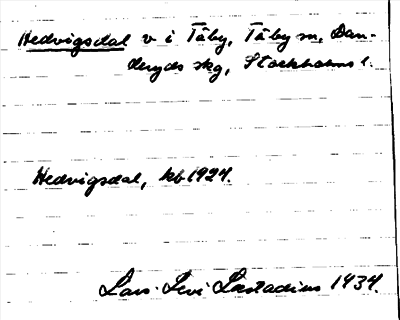 Hedvigsdal v i Täby, Täby sn, Dan-
deryds skg, Stockholms l.
Hedvigsdal, kb 1927.
Lars-Levi Læstadius 1934.